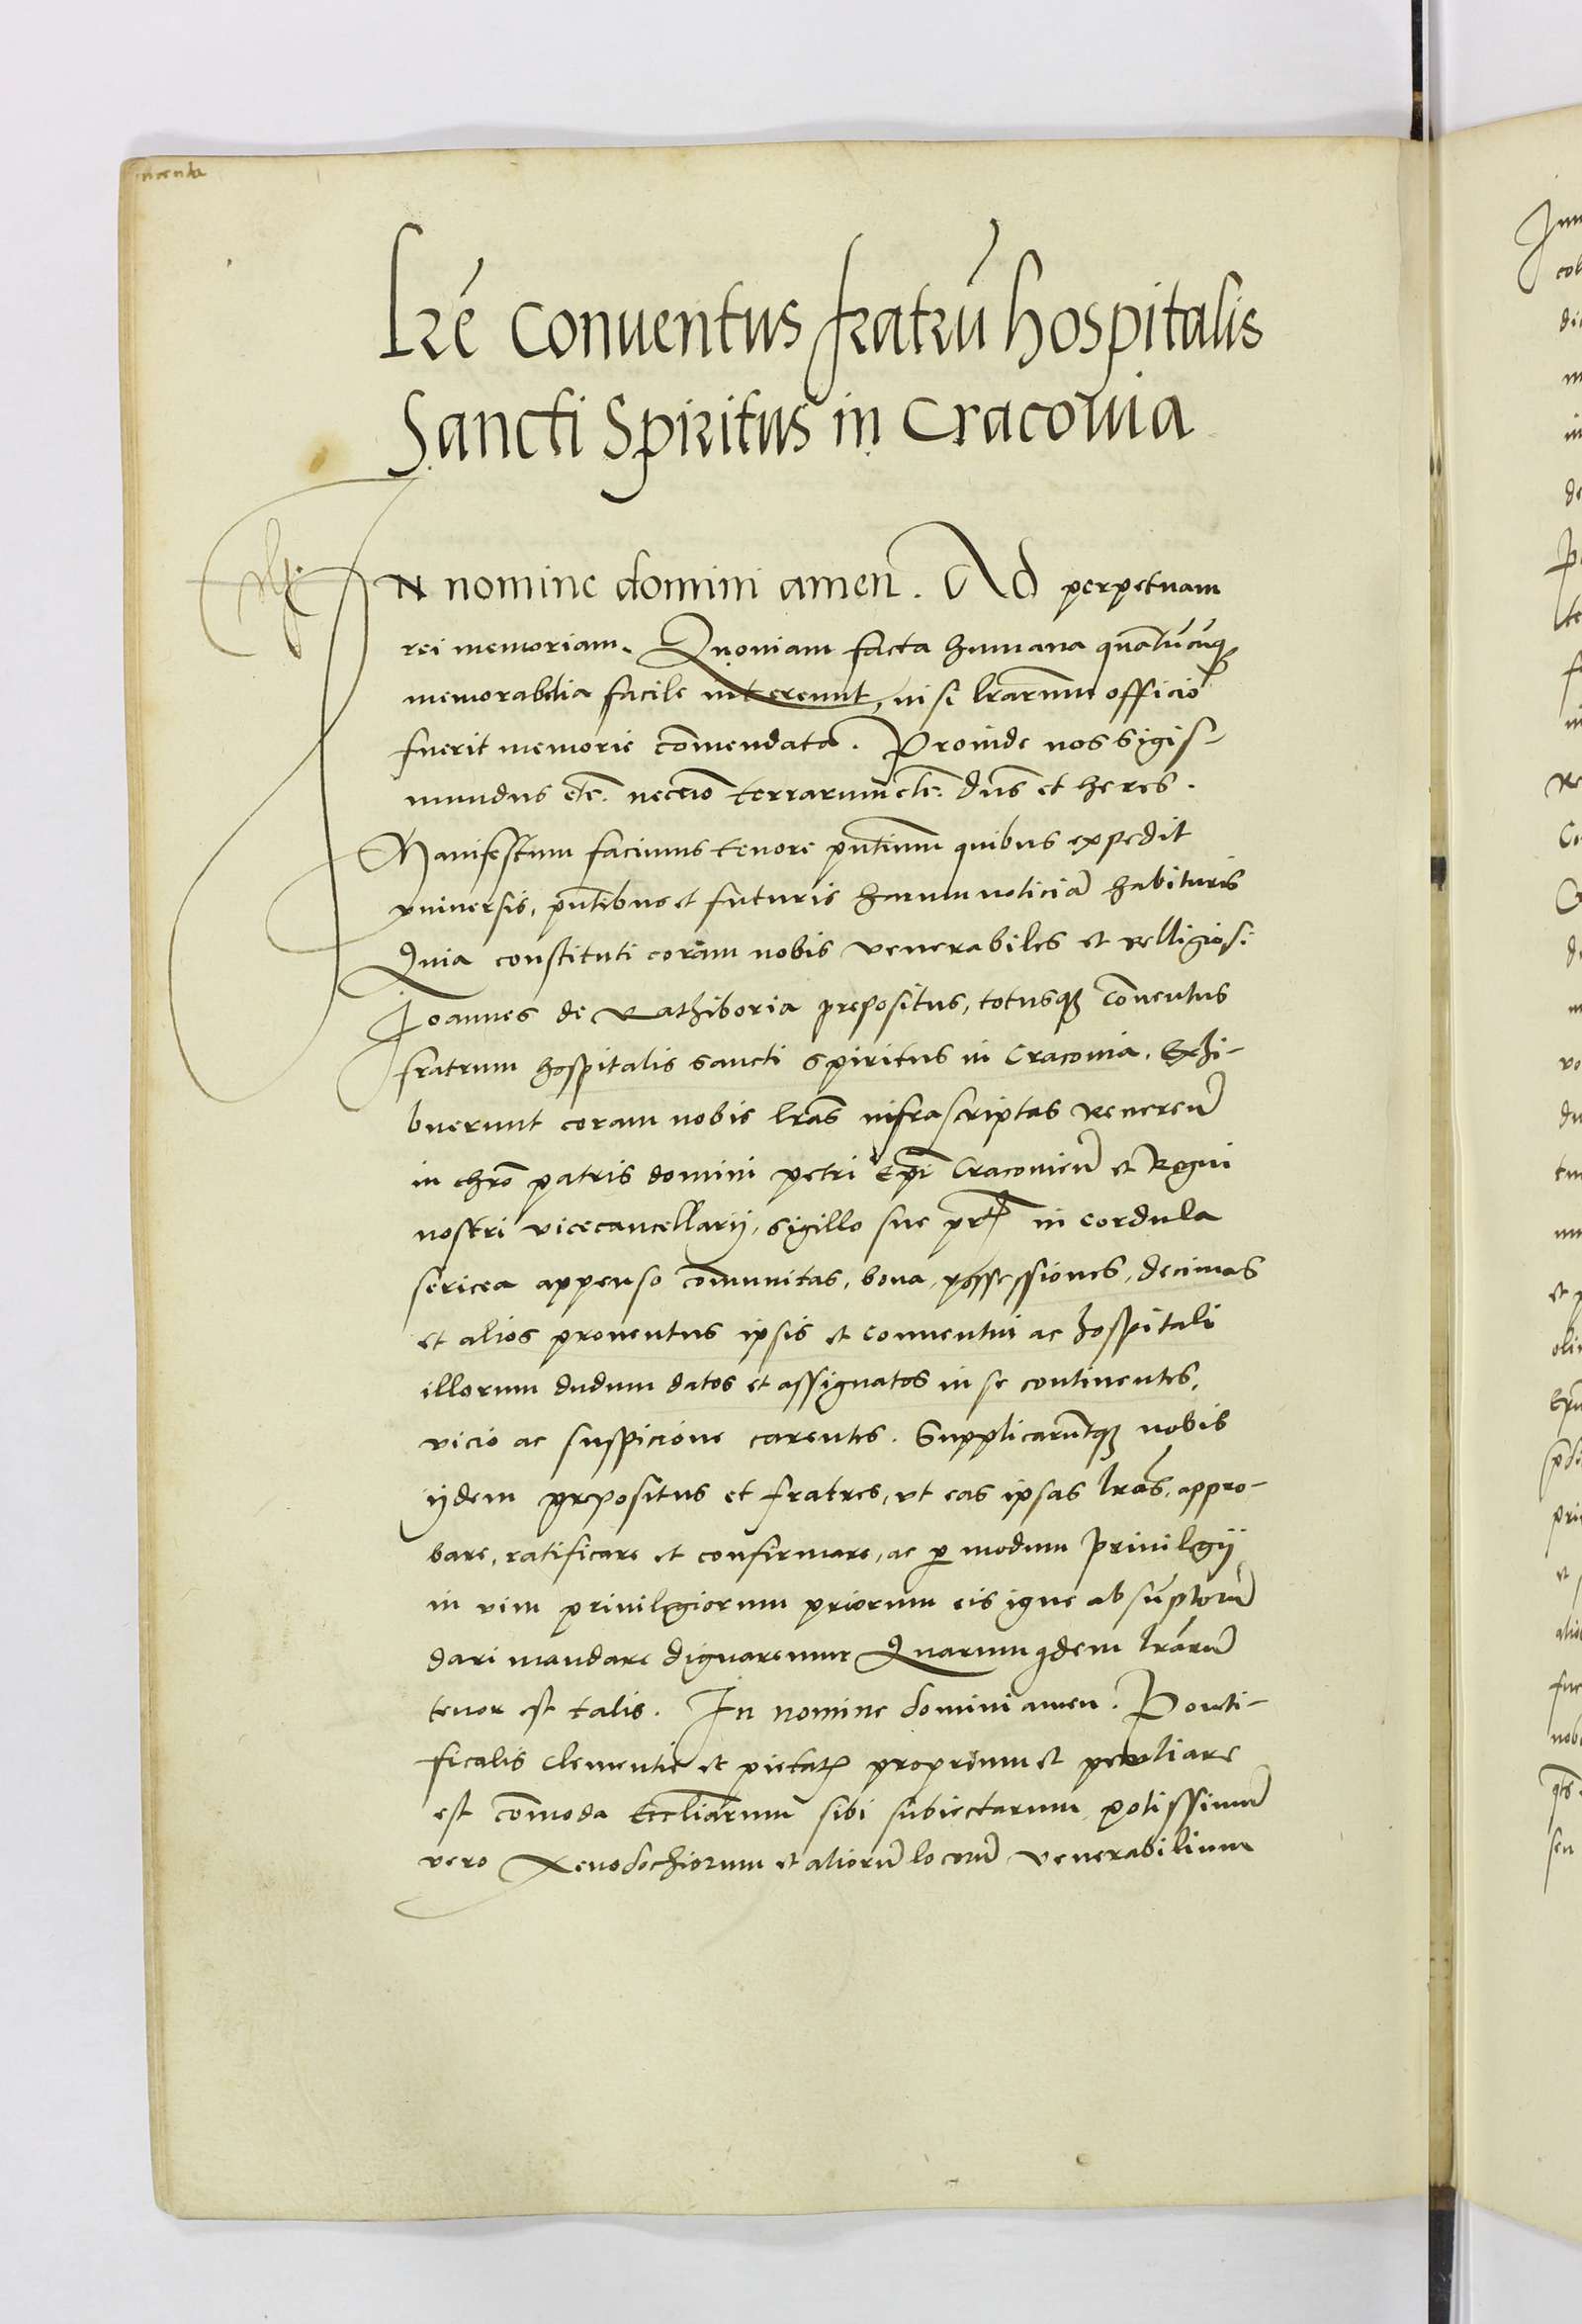 Lrē conuentus fratrū hospitalis
Sancti Spiritus in Cracouia
IN nomine domini amen. Ad perpetuam
rei memoriam. Quoniam facta humana quātūcūq
memorabilia facile intereunt, nisi lrarum officio
fuerit memorie cōmendata. Proinde nos Sigis-
mundus etc. necnō terrarum etc. dns et heres.
Manifestum facimus tenore pntium quibus expedit
vniuersis, pntibus et futuris harum noticiā habituris
Quia constituti coram nobis venerabiles et relligiosi
Joannes de Rathiboria prepositus, totusqз cōuentus
fratrum hospitalis sancti spiritus in Cracouia. Exhi-
buerunt coram nobis lras infrascriptas Reuerēn
in chro patris domini petri Epi Cracouien et Regni
nostri vicecancellarij, sigillo sue in cordula
sericea appenso cōmunitas, bona, possessiones, decimas
et alios prouentus ipsis et conuentui ac hospitali
illorum dudum datos et assignatos in se continentes,
vicio ac suspicione carentes. Supplicaruntqз nobis
ijdem prepositus et fratres, vt eas ipsas lras, appro-
bare, ratificare et confirmare, ac p modum priuilegij
in vim priuilegiorum priorum eis igne absūptorū
dari mandare dignaremur Quarum qdem lrarū
tenor est talis. In nomine domini amen. Ponti-
ficalis clementie et pietatis proprium et peculiare
est cōmoda Eccliarum sibi subiectarum potissimū
vero Xenodochiorum et aliorū locorū venerabilium